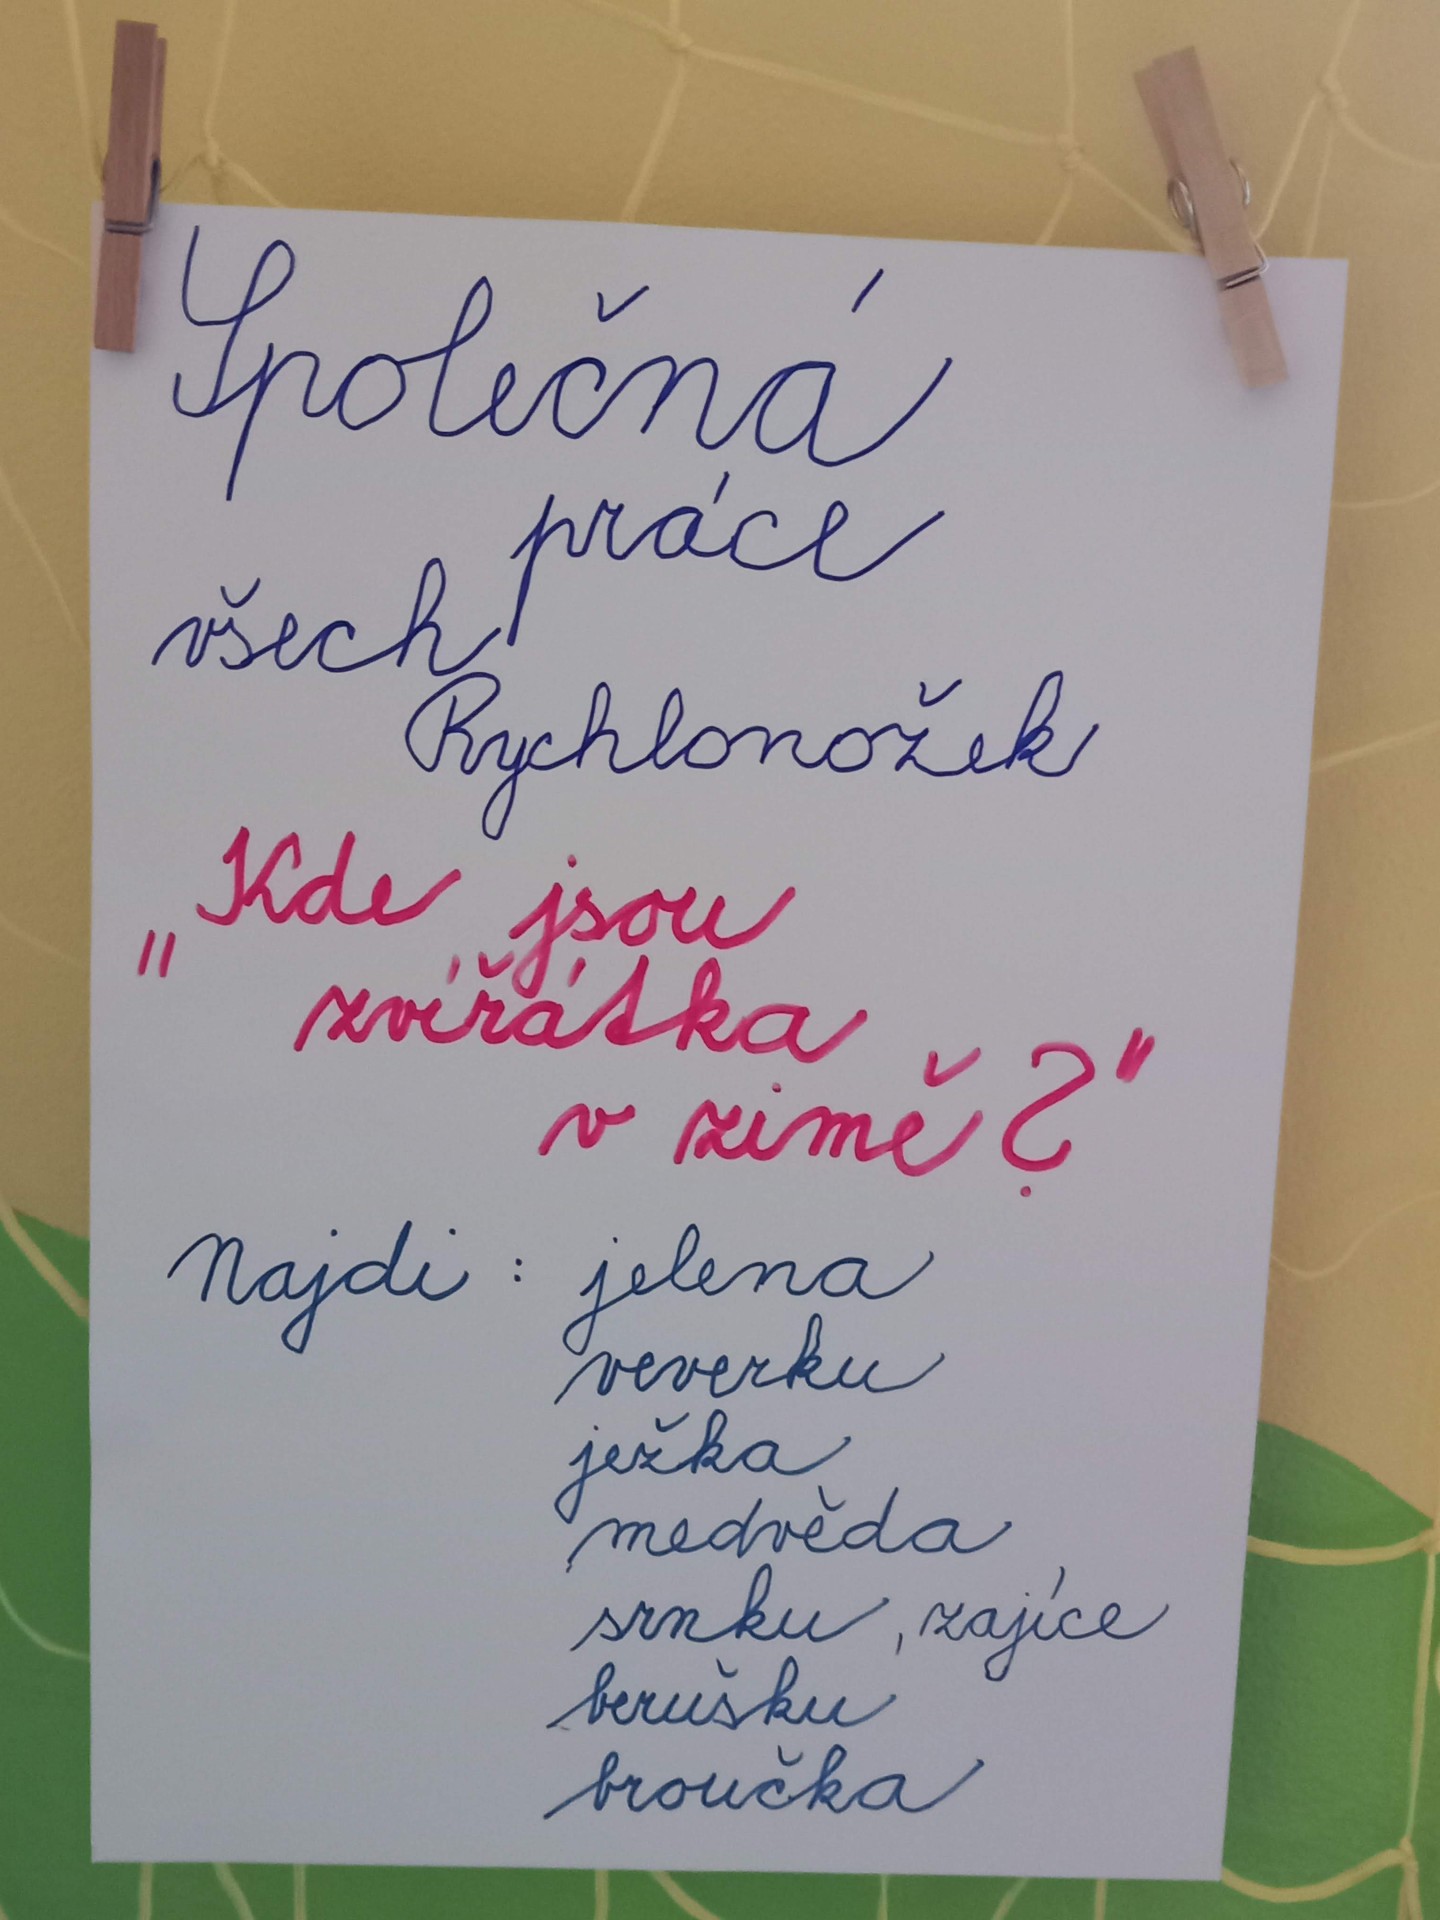 Společná
práce
všech
Rychlonožek
„Kde jsou
zvířátka
v zimě?"
Najdi: jelena
veverku
ježka
medvěda
srnku, zajíce
berušku
broučka